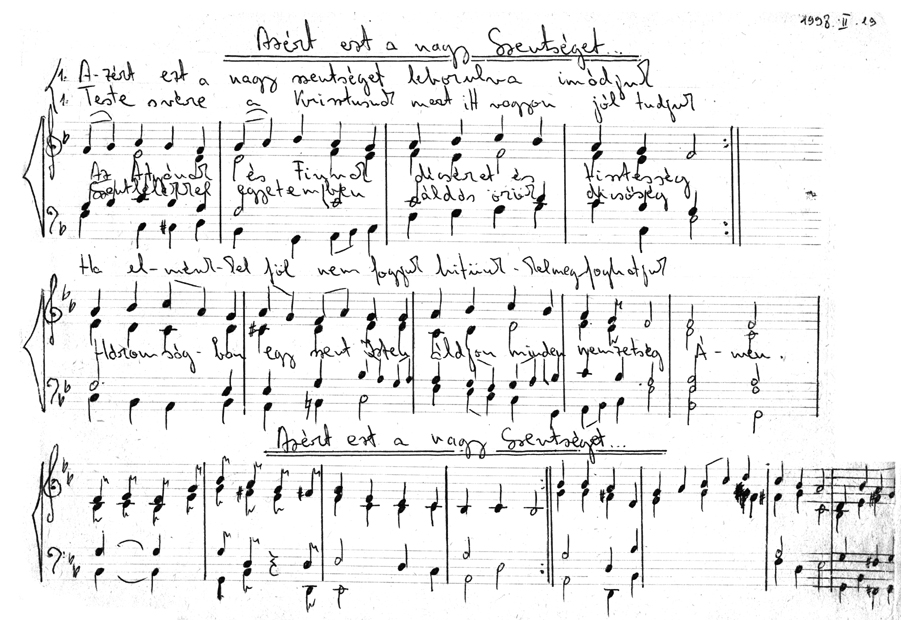 1998. II. 19
Azért ezt a nagy Szentséget...
1. A-zért ezt a nagy szentséget leborulva imádjuk
1. Teste s vére a Krisztusnak mert itt vagyon jól tudjuk
Az Atyának és Fiunak dicséret és tisztesség
Szentlélekkel egyetemben áldás örök dicsőség
Ha el-ménk-kel föl nem fogjuk hitünk-kel megfoghatjuk
Háromság-ban egy szent Isten áldjon minden nemzetség Á-men.
Azért ezt a nagy Szentséget...